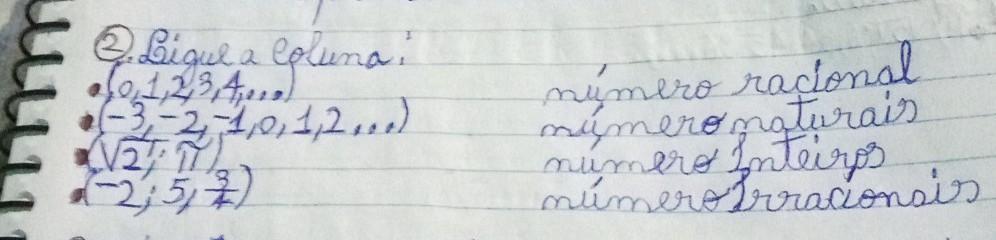 ②. Ligue a coluna:
• (0,1,2,3,4,...) número racional
• (-3,-2,-1,0,1,2...) número naturais
• (√2; π) número Inteiros
• (-2; 5, 3/4) número Irracionais